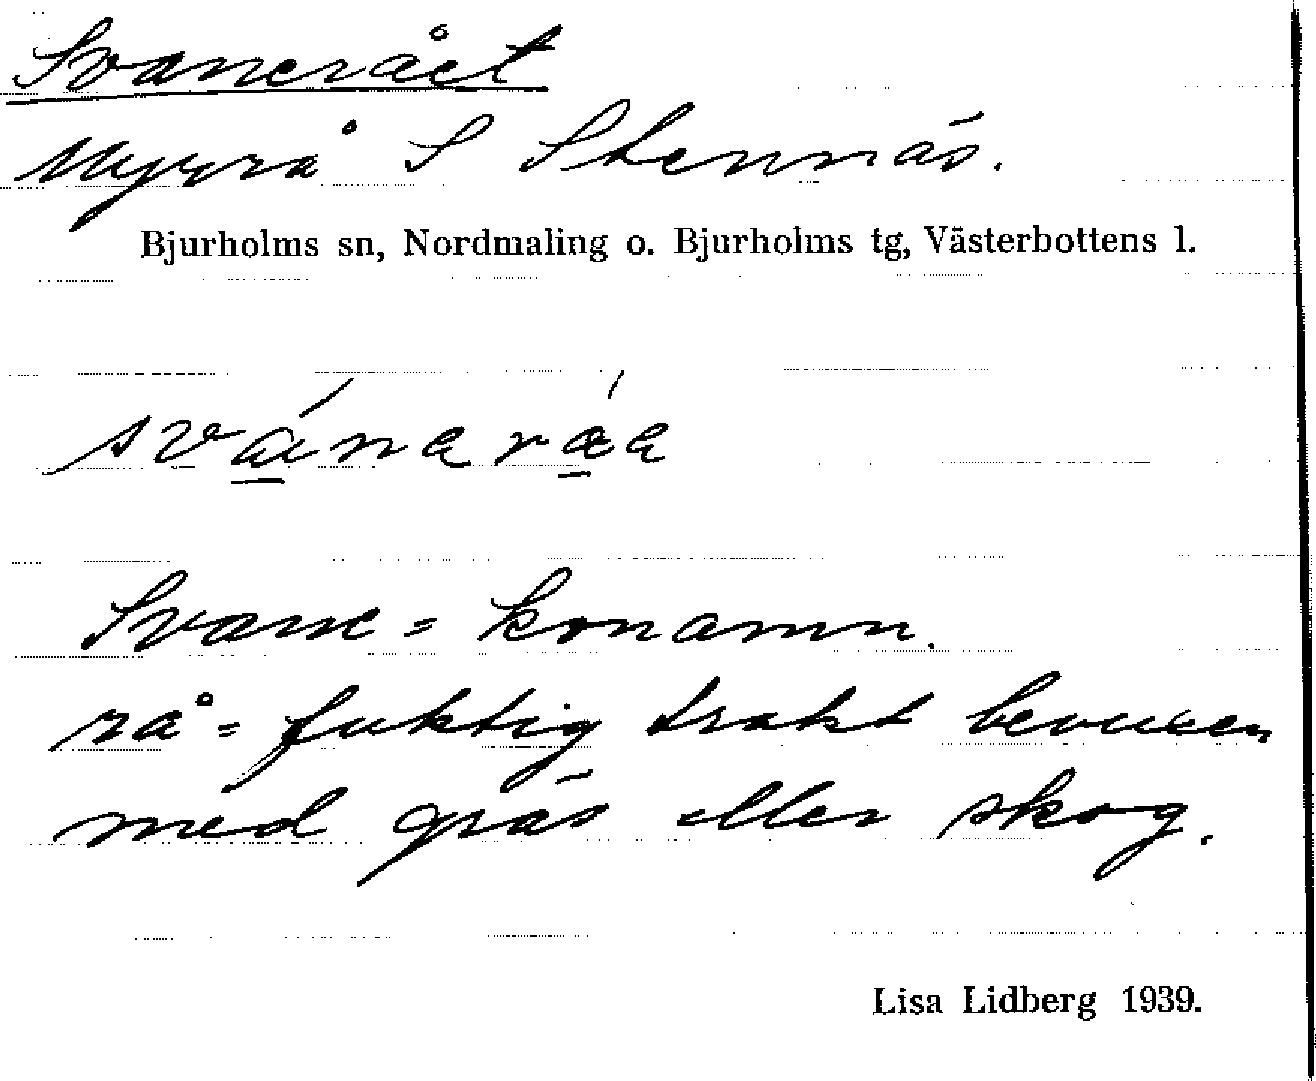 Svaneråct
Myrrå S Stennäs.
Bjurholms sn, Nordmaling o. Bjurholms tg, Västerbottens l.
svánaráa
Svane = konamn.
rå = fuktig trakt bevuxen
med gräs eller skog.
Lisa Lidberg 1939.